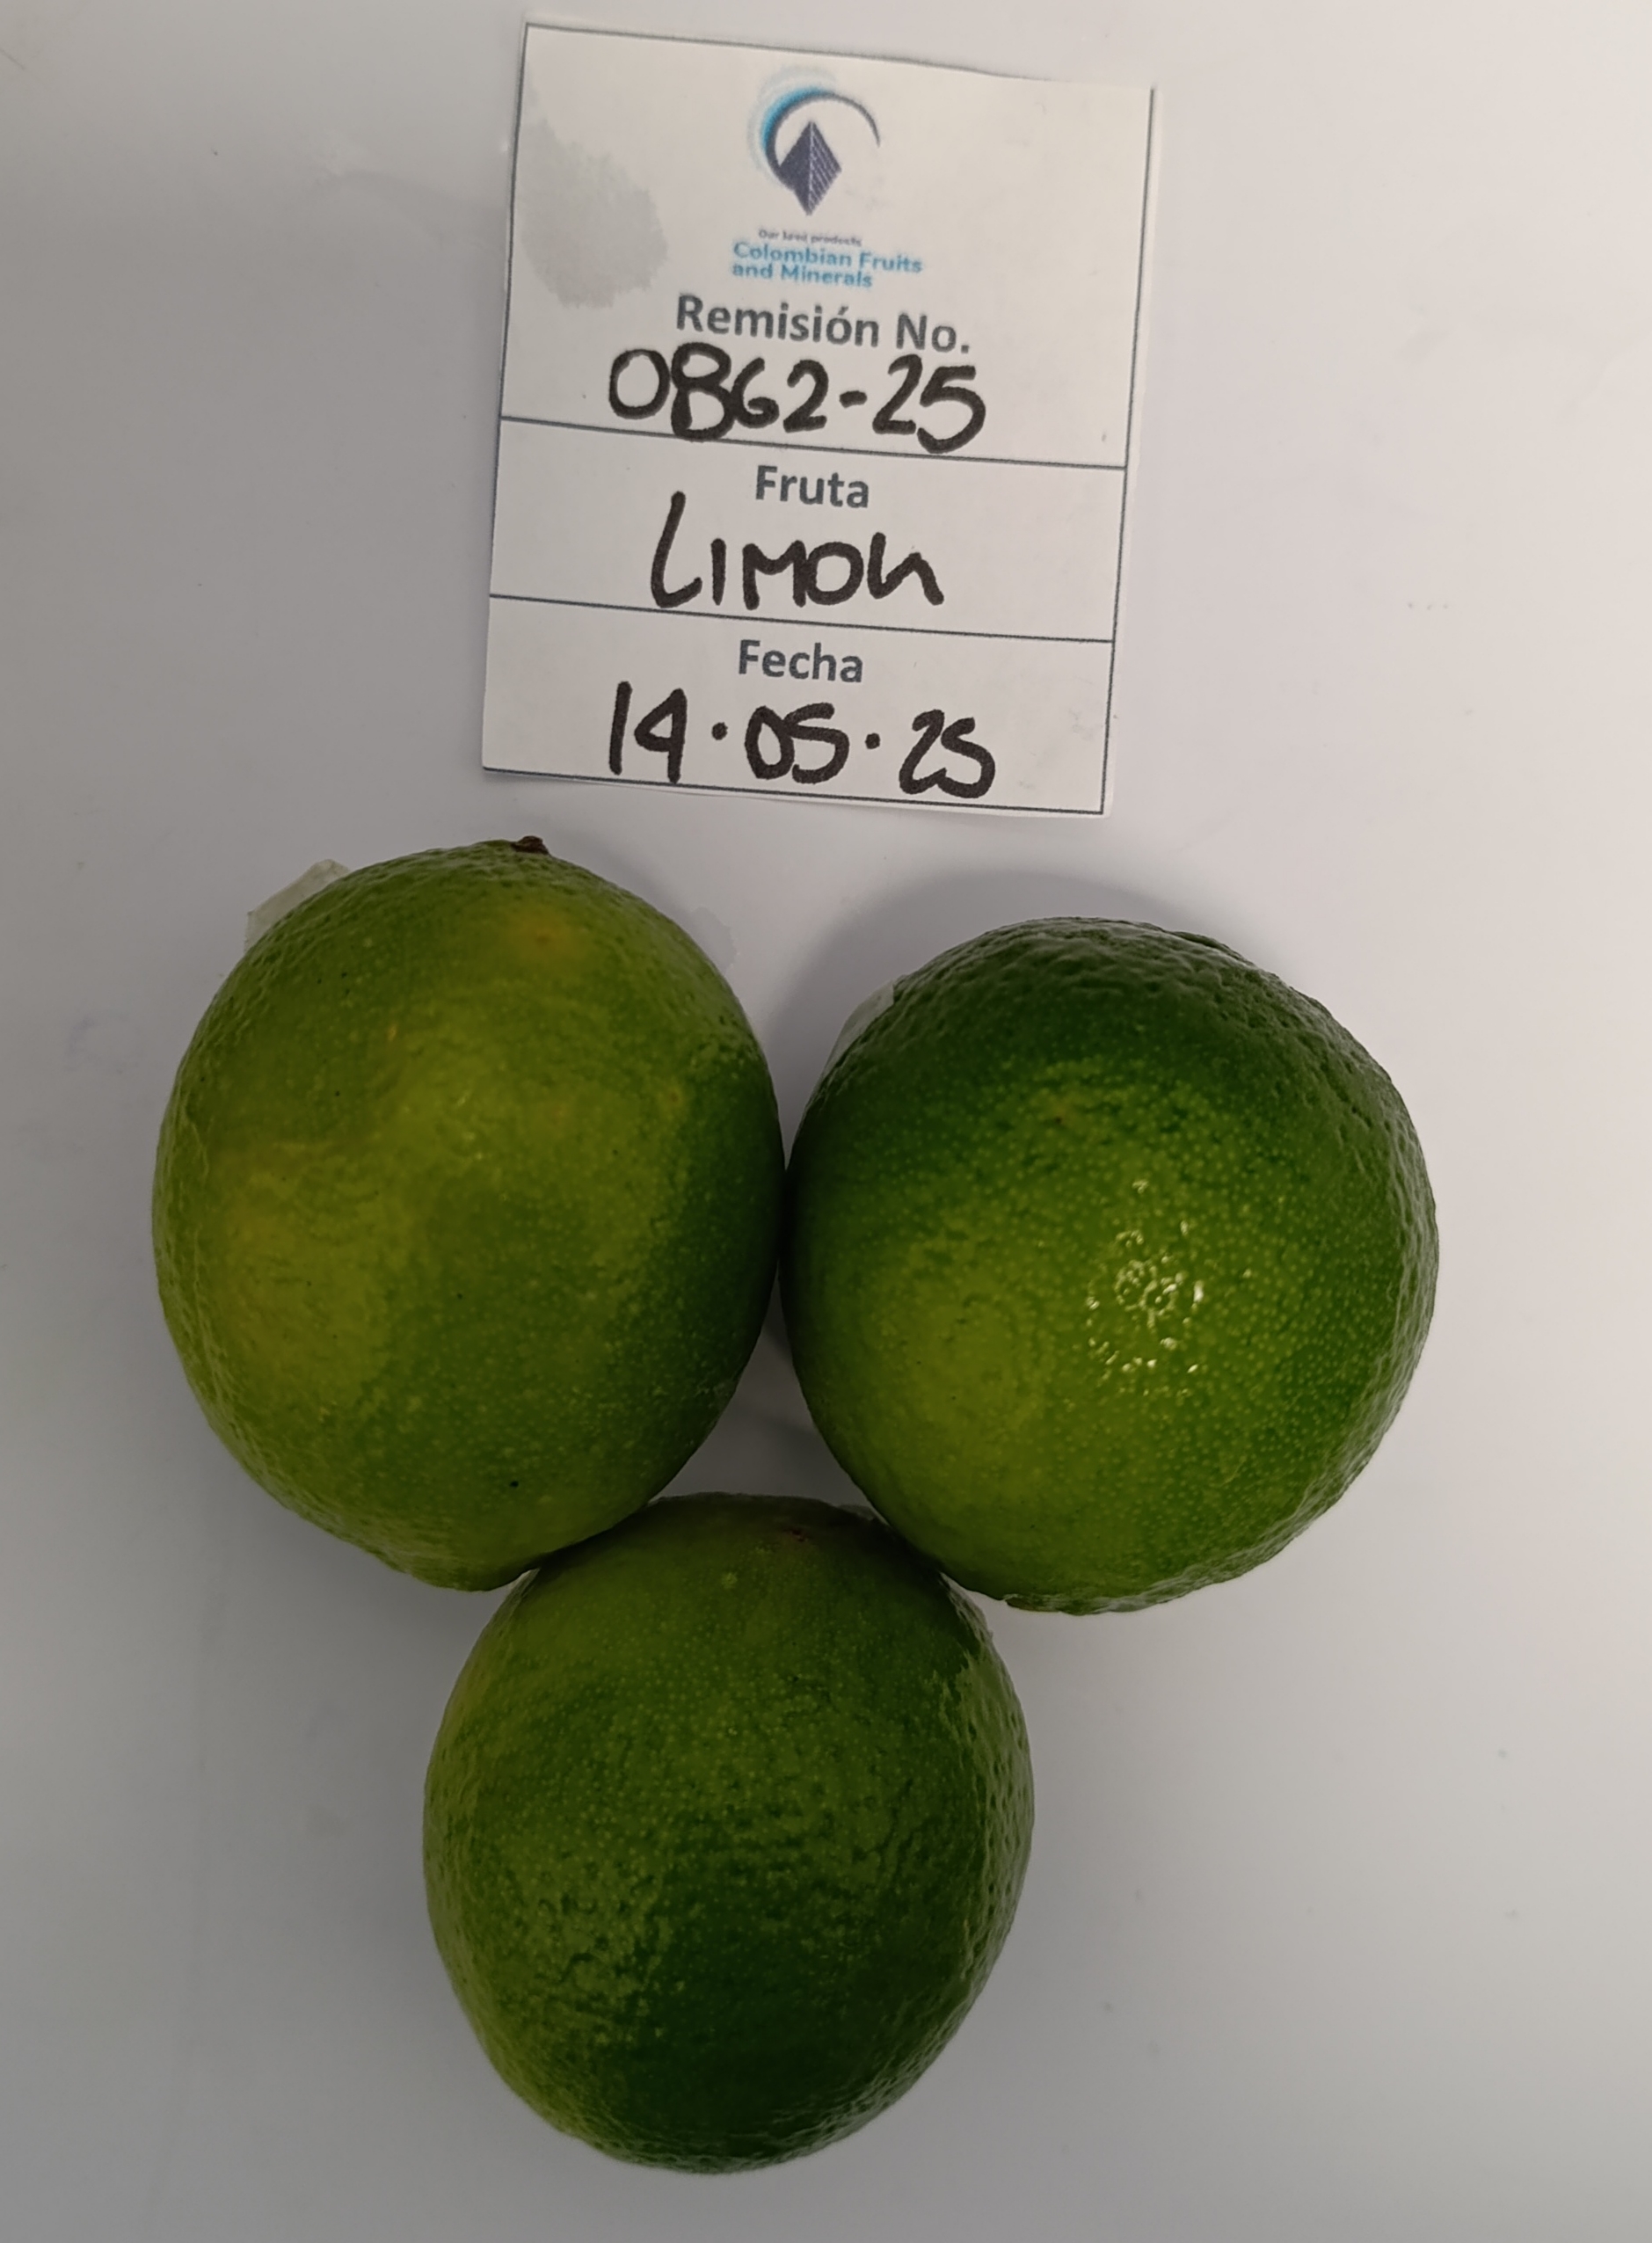 Our best products
Colombian Fruits
and Minerals
Remisión No.
0862-25
Fruta
LIMON
Fecha
14.05.25